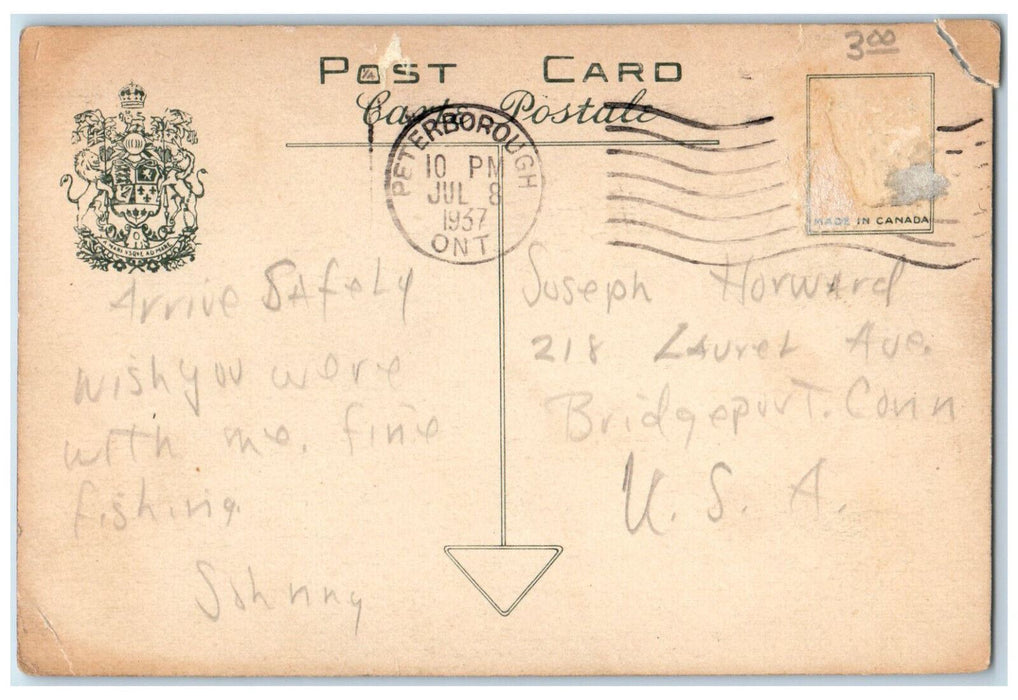 3.00
POST CARD
Carte Postale
PETERBOROUGH
10 PM
JUL 8
1937
ONT
MADE IN CANADA
A MARI USQUE AD MARE
Arrive SAfeLy
wish you were
with me. fine
fishing.
Johnny
Joseph Horward
218 LAureL Ave.
Bridgeport. Conn
U. S. A.